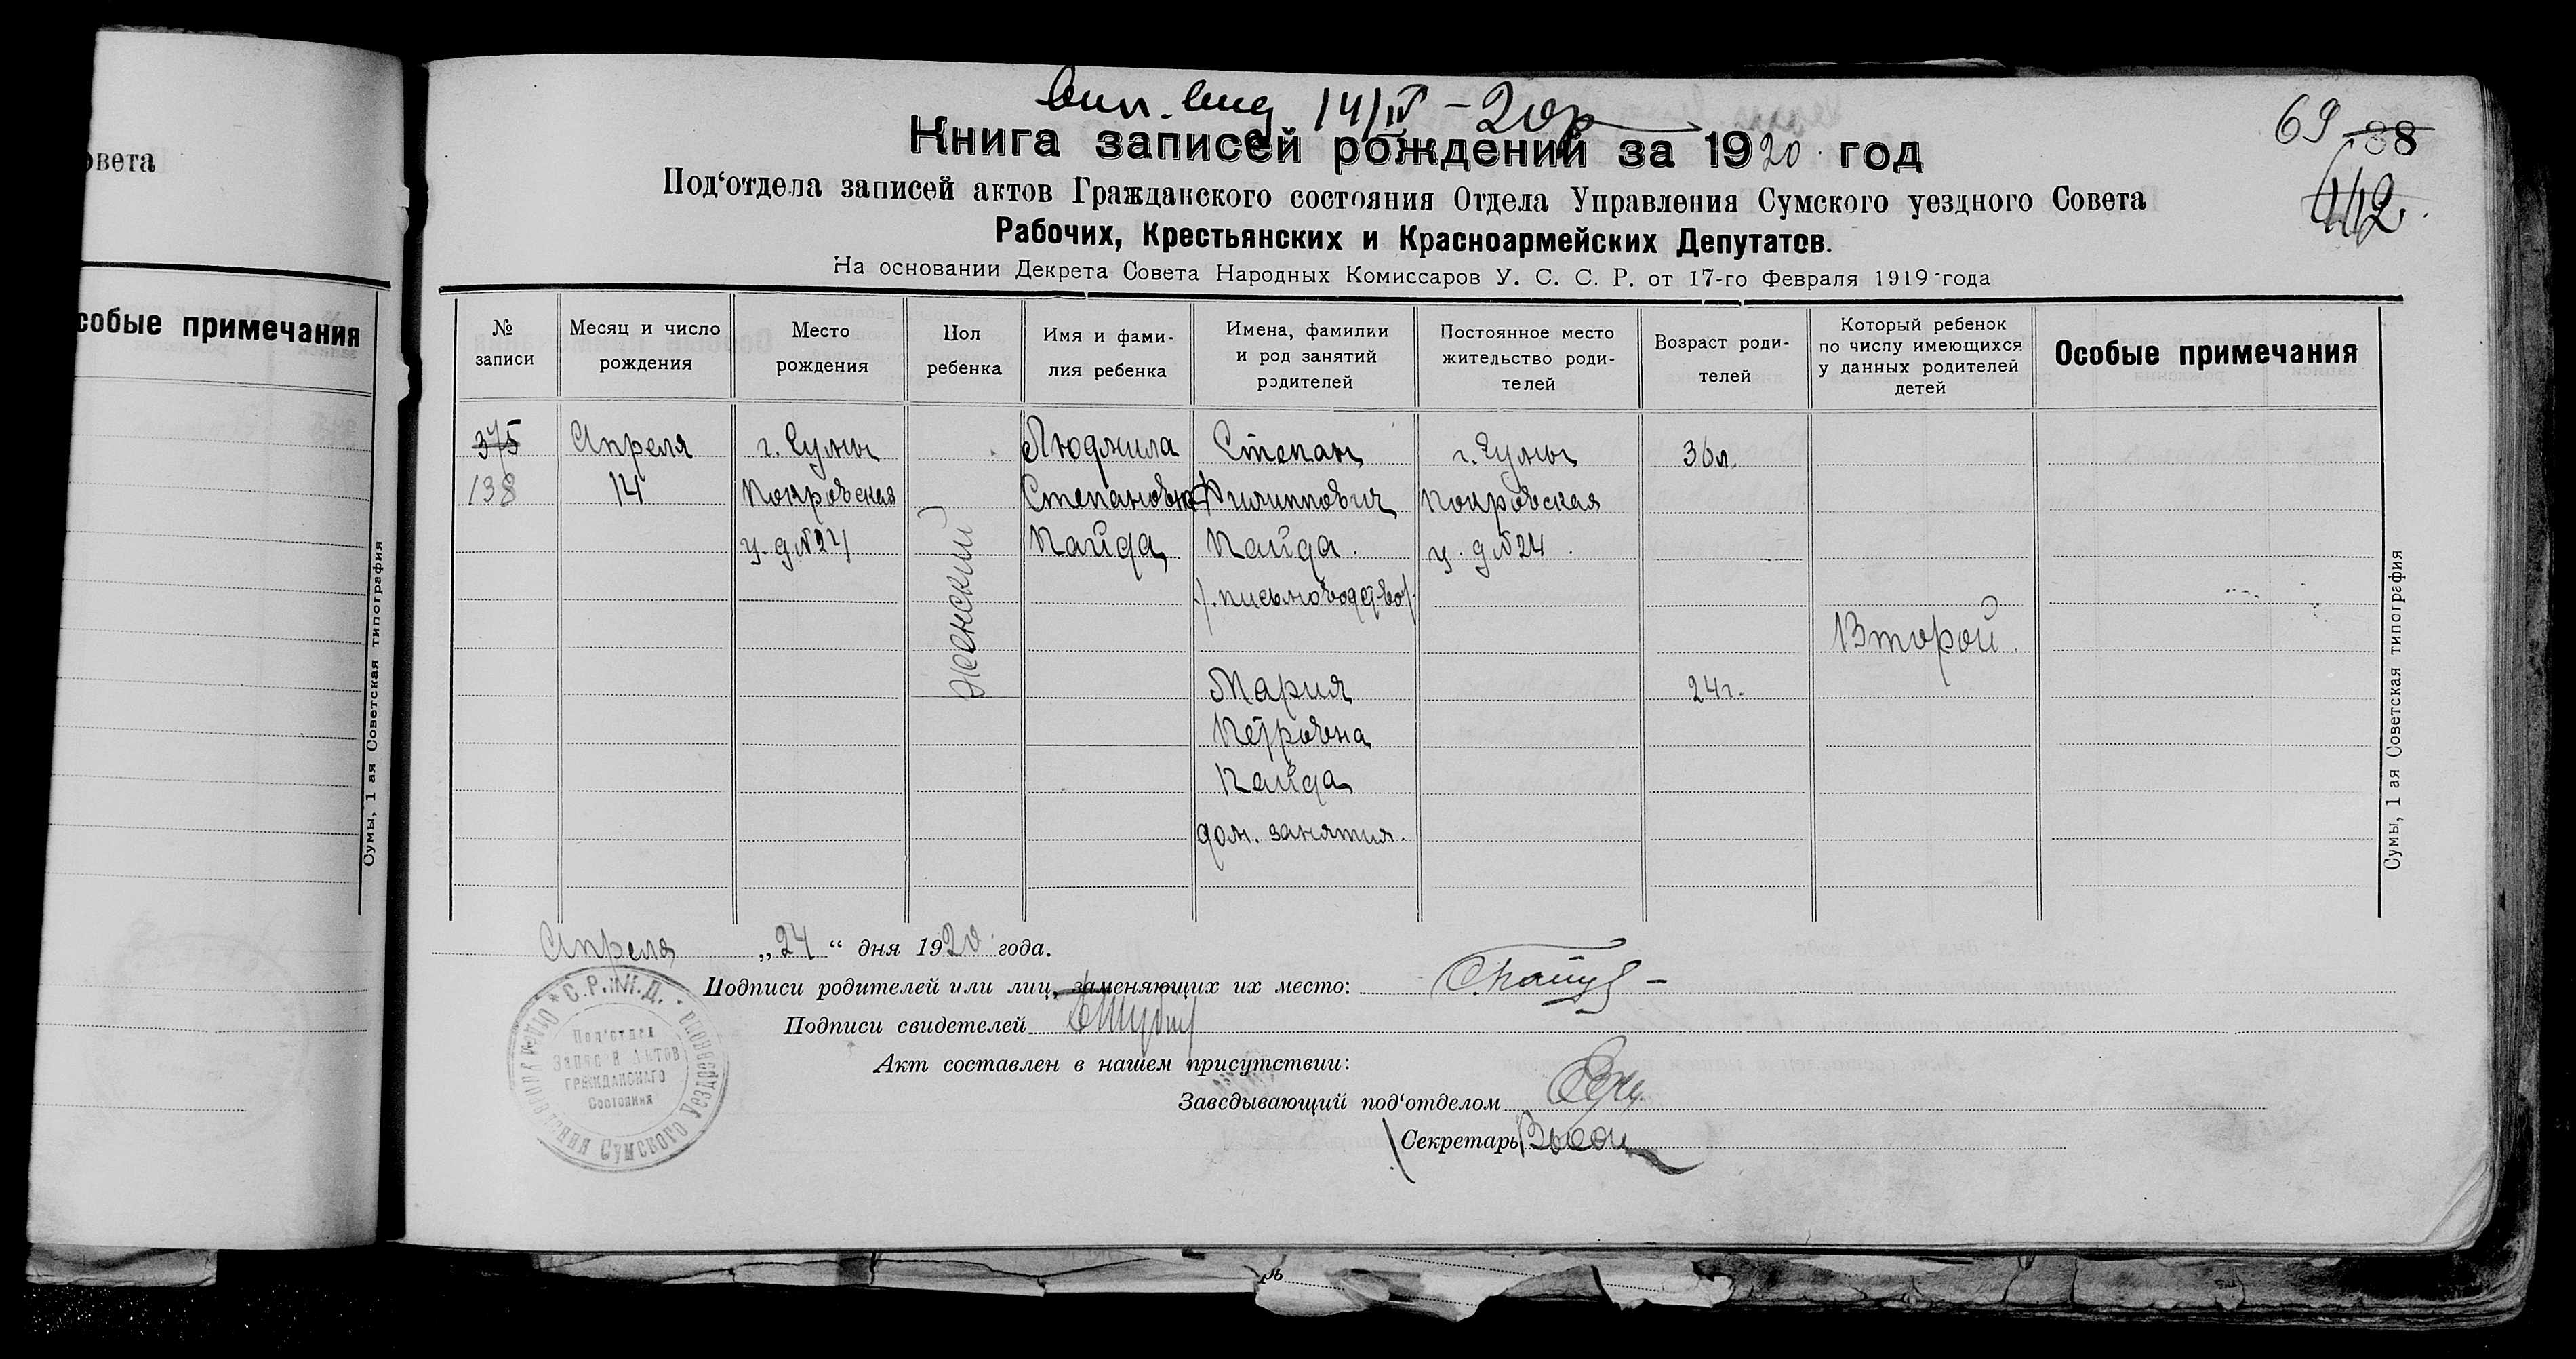 овета
собые примечания
Сумы, 1 ая Советская типография
14/IV - 20
69 88
112
Книга записей рождений за 1920 год
Под‘отдела записей актов Гражданского состояния Отдела Управления Сумского уездного Совета
Рабочих, Крестьянских и Красноармейских Депутатов.
На основании Декрета Совета Народных Комиссаров У. С. С. Р. от 17-го Февраля 1919 года
№ записи
Месяц и число рождения
Место рождения
Пол ребенка
Имя и фами-
лия ребенка
Имена, фамилии
и род занятий
родителей
Постоянное место
жительство роди-
телей
Возраст роди-
телей
Который ребенок
по числу имеющихся
у данных родителей
детей
Особые примечания
375
138
Апреля
14
г. Сумы
Покровская
у. д №24
женский
Людмила
Степановна
Пайда
Степан
Филиппович
Пайда.
/.письмоводд-во/.
Мария
Петровна
Пайда
дом. занятия.
г. Сумы
Покровская
у. д №24.
36л.
24г.
Второй.
Сумы, 1 ая Советская типография
Апреля „24“ дня 1920 года.
Подписи родителей или лиц, заменяющих их место:
Подписи свидетелей
Акт составлен в нашем присутствии:
Заведывающий под‘отделом
Секретарь
С.Р.И.Д.
Под‘отдел
Записей Актов
Гражданского
Состояния
Отдел Управления Сумского Уездного